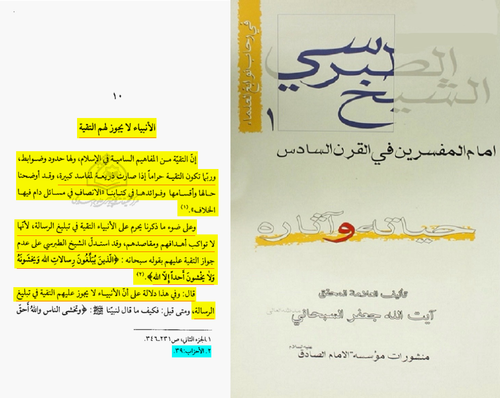 ١٠
الأنبياء لا يجوز لهم التقية
إنّ التقيّة مـن المفاهيم السامية في الإسلام، ولها حدود وضوابط،
وربّما تكون التقيـة حراماً إذا صارت ذريعة لمفاسد كبيرة، وقد أوضحنا
حالها وأقسامها وفوائدها في كتابنا «الانصاف في مسائل دام فيهـا
الخلاف».(١)
وعلى ضوء ما ذكرنا يحرم على الأنبياء التقية في تبليغ الرسالة، لأنّها
لا تواكب أهدافهم ومقاصدهم، وقد استدلّ الشيخ الطبرسي على عدم
جواز التقية عليهم بقوله سبحانه : ﴿الَّذينَ يُبَلِّغُونَ رِسالاتِ الله وَيَخْشَونَهُ
وَلا يَخْشَونَ أَحداً إِلاّ الله﴾.(٢)
قال: وفي هذا دلالة على أنّ الأنبياء لا يجوز عليهم التقية في تبليغ
الرسالة، ومتى قيل: فكيف ما قال لنبيّنا ﷺ : ﴿وتَخشى الناس واللهُ أحقّ
١. الجزء الثاني، ص٢٣١ـ٣٤٦.
٢. الأحزاب:٣٩.
في رحاب نوابغ العلماء
الشيخ الطبرسي
١
امام المفسرين في القرن السادس
حياته وآثاره
تأليف العلامة المحقق
آيت الله جعفر السبحاني
منشورات مؤسسة الامام الصادق